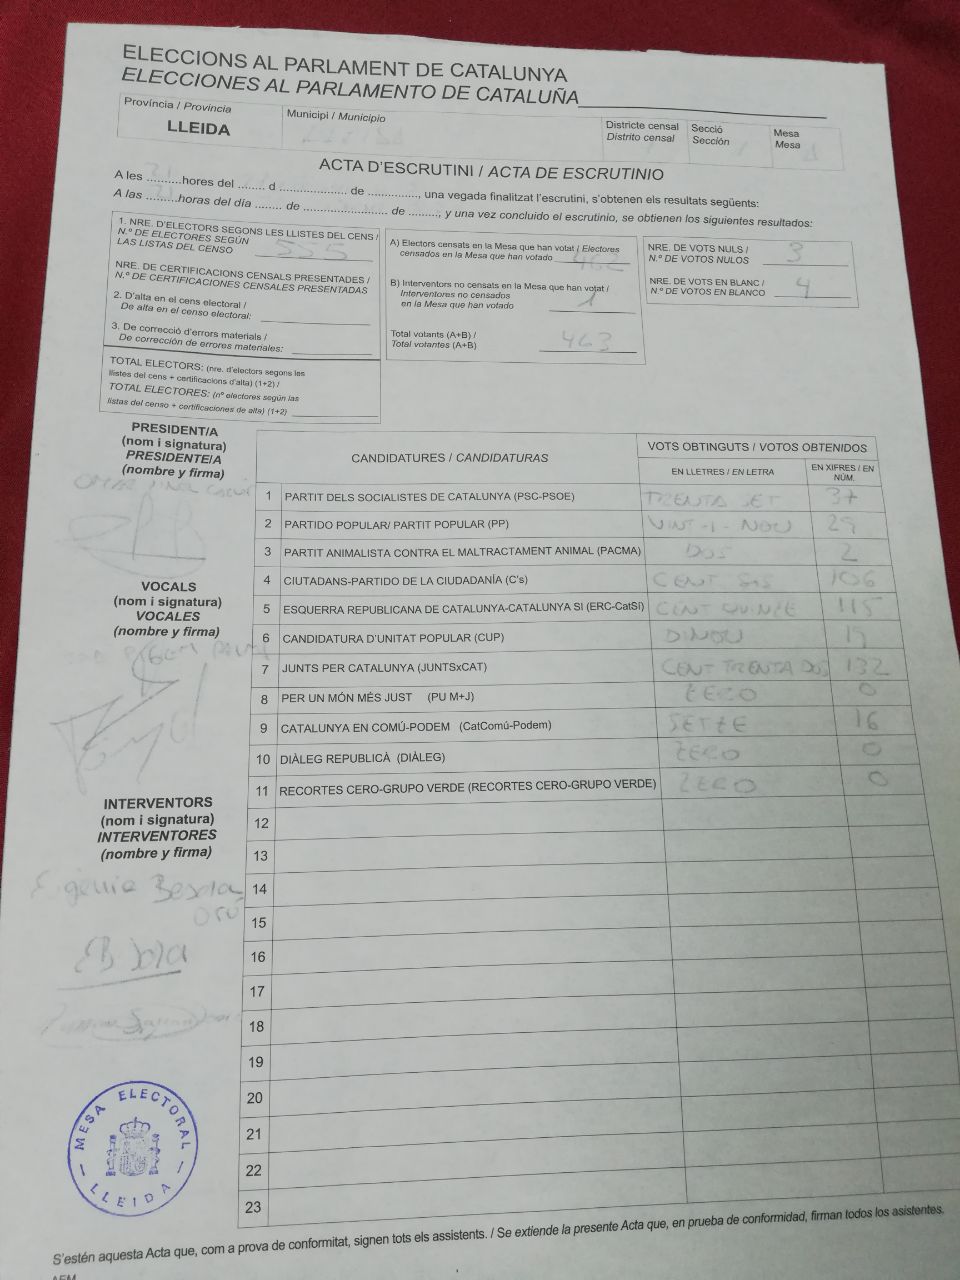 ELECCIONS AL PARLAMENT DE CATALUNYA
ELECCIONES AL PARLAMENTO DE CATALUÑA
Província / Provincia
LLEIDA
Municipi / Municipio
Districte censal
Distrito censal
Secció
Sección
Mesa
Mesa
ACTA D'ESCRUTINI / ACTA DE ESCRUTINIO
A les ..........hores del ........ d .................... de ..............., una vegada finalitzat l'escrutini, s'obtenen els resultats següents:
A las .........horas del día ........ de ......................... de ........., y una vez concluido el escrutinio, se obtienen los siguientes resultados:
1. NRE. D'ELECTORS SEGONS LES LLISTES DEL CENS /
N.º DE ELECTORES SEGÚN
LAS LISTAS DEL CENSO 555
NRE. DE CERTIFICACIONS CENSALS PRESENTADES /
N.º DE CERTIFICACIONES CENSALES PRESENTADAS
2. D'alta en el cens electoral /
De alta en el censo electoral:
3. De correcció d'errors materials /
De corrección de errores materiales:
TOTAL ELECTORS: (nre. d'electors segons les
llistes del cens + certificacions d'alta) (1+2) /
TOTAL ELECTORES: (nº electores según las
listas del censo + certificaciones de alta) (1+2)
A) Electors censats en la Mesa que han votat / Electores
censados en la Mesa que han votado 462
B) Interventors no censats en la Mesa que han votat /
Interventores no censados
en la Mesa que han votado 1
Total votants (A+B) /
Total votantes (A+B) 463
NRE. DE VOTS NULS /
N.º DE VOTOS NULOS 3
NRE. DE VOTS EN BLANC /
N.º DE VOTOS EN BLANCO 4
PRESIDENT/A
(nom i signatura)
PRESIDENTE/A
(nombre y firma)
VOCALS
(nom i signatura)
VOCALES
(nombre y firma)
INTERVENTORS
(nom i signatura)
INTERVENTORES
(nombre y firma)
CANDIDATURES / CANDIDATURAS
VOTS OBTINGUTS / VOTOS OBTENIDOS
EN LLETRES / EN LETRA
EN XIFRES / EN
NÚM.
1 PARTIT DELS SOCIALISTES DE CATALUNYA (PSC-PSOE) TRENTA SET 37
2 PARTIDO POPULAR/ PARTIT POPULAR (PP) VINT-I-NOU 29
3 PARTIT ANIMALISTA CONTRA EL MALTRACTAMENT ANIMAL (PACMA) DOS 2
4 CIUTADANS-PARTIDO DE LA CIUDADANÍA (C's) CENT SIS 106
5 ESQUERRA REPUBLICANA DE CATALUNYA-CATALUNYA SI (ERC-CatSí) CENT QUINZE 115
6 CANDIDATURA D'UNITAT POPULAR (CUP) DINOU 19
7 JUNTS PER CATALUNYA (JUNTSxCAT) CENT TRENTA DOS 132
8 PER UN MÓN MÉS JUST (PU M+J) ZERO 0
9 CATALUNYA EN COMÚ-PODEM (CatComú-Podem) SETZE 16
10 DIÀLEG REPUBLICÀ (DIÀLEG) ZERO 0
11 RECORTES CERO-GRUPO VERDE (RECORTES CERO-GRUPO VERDE) ZERO 0
12
13
14
15
16
17
18
19
20
21
22
23
MESA ELECTORAL
LLEIDA
S'estén aquesta Acta que, com a prova de conformitat, signen tots els assistents. / Se extiende la presente Acta que, en prueba de conformidad, firman todos los asistentes.